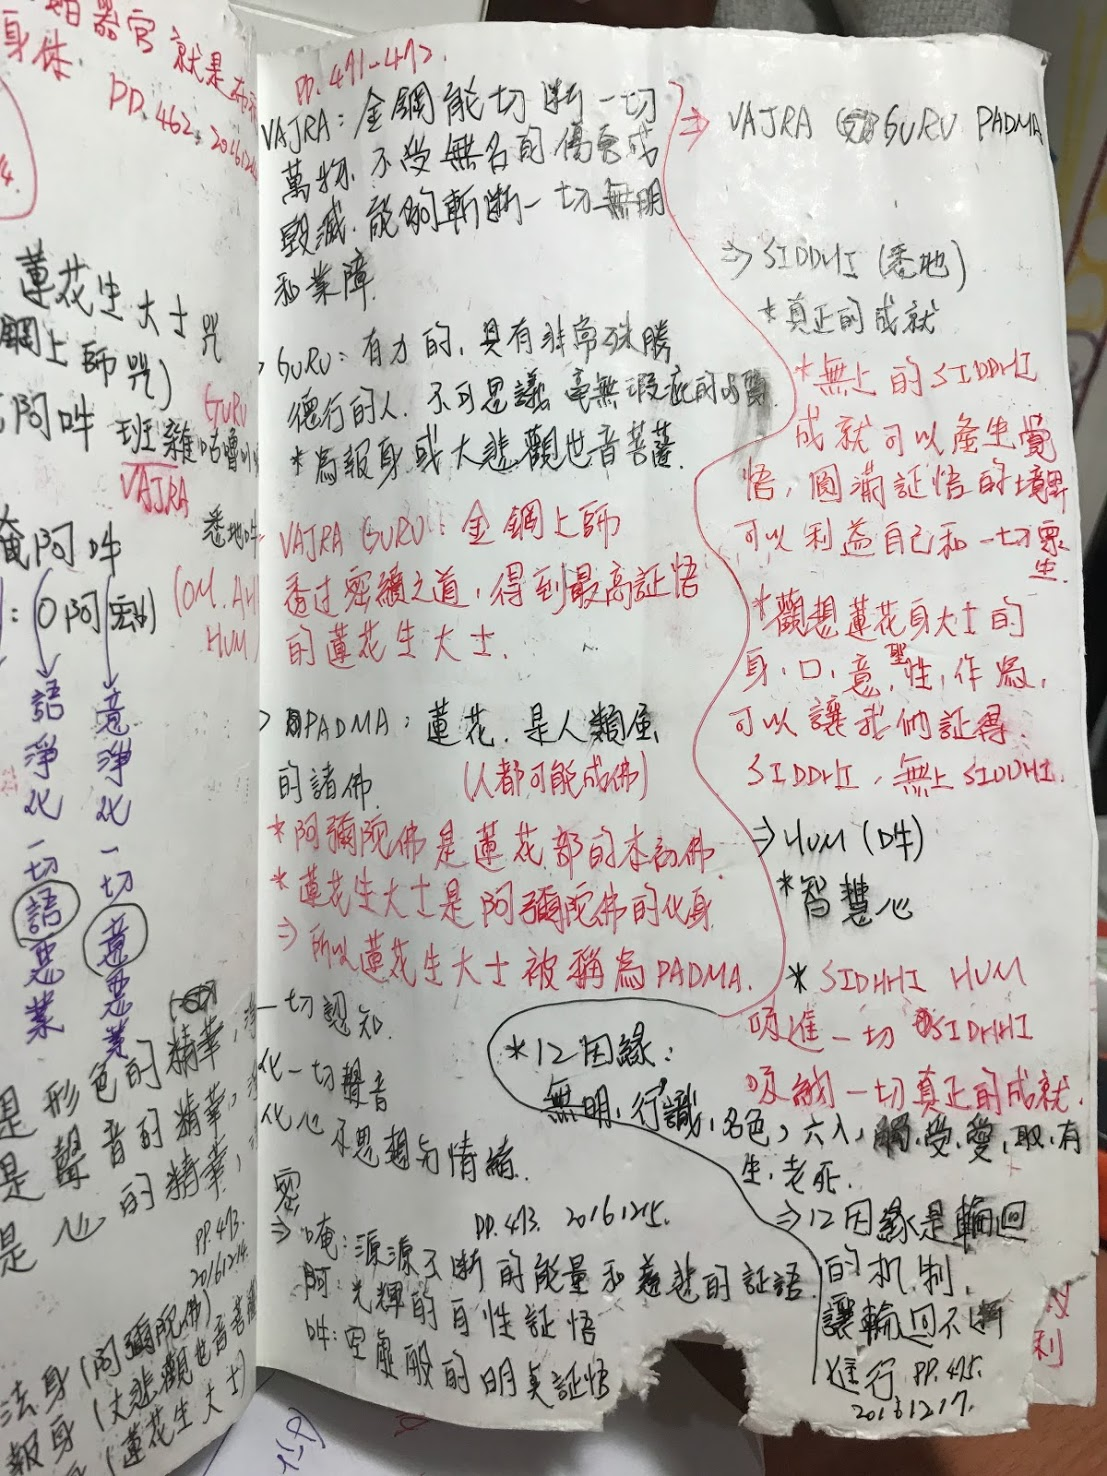 器官就是
身体.
PP.462.
蓮花生大士咒
鋼上師咒)
阿吽 班雜咕嚕
GURU
VAJRA
悉地吽
唵阿吽
(OM. AH
HUM)
語淨化一切語惡業
意淨化一切意惡業
是形色的精華,
是聲音的精華,
是心的精華,
PP.473.
20161214.
法身(阿彌陀佛)
報身(大悲觀世音菩薩
(蓮花生大士)
PP.471-472.
VAJRA: 金鋼能切断一切
萬物. 不受無名的傷害或
毀滅. 能夠斬断一切無明
和業障.
GURU: 有力的, 具有非常殊勝
德行的人. 不可思議 毫無瑕疵的
*為報身或大悲觀世音菩薩.
VAJRA GURU: 金鋼上師
透过密續之道, 得到最高証悟
的蓮花生大士.
PADMA: 蓮花. 是人類
的諸佛. (人都可能成佛)
*阿彌陀佛是蓮花部的本初佛.
*蓮花生大士是阿彌陀佛的化身.
⇒所以蓮花生大士被稱為PADMA.
一切認知.
化一切聲音
化心 思想与情緒.
密
PP.473. 20161215.
⇒唵: 源源不断的能量和慈悲的証語
阿: 光輝的自性証悟
吽: 空虛般的明真証悟
⇒ VAJRA GURU PADMA
⇒ SIDDHI (悉地)
*真正的成就
*無上的SIDDHI
成就可以產生覺
悟, 圓滿証悟的境界
可以利益自己和一切眾
生.
*觀想蓮花身大士的
身, 口, 意, 聖性, 作為,
可以讓我們証得.
SIDDHI, 無上SIDDHI.
⇒HUM (吽)
*智慧心
* SIDHHI HUM
頌進一切SIDHHI
吸納一切真正的成就.
*12因緣:
無明, 行, 識, 名色, 六入, 觸, 受, 愛, 取, 有
生, 老死.
⇒12因緣是輪迴
的机制,
讓輪迴不断
進行 PP.475.
20161217.
利